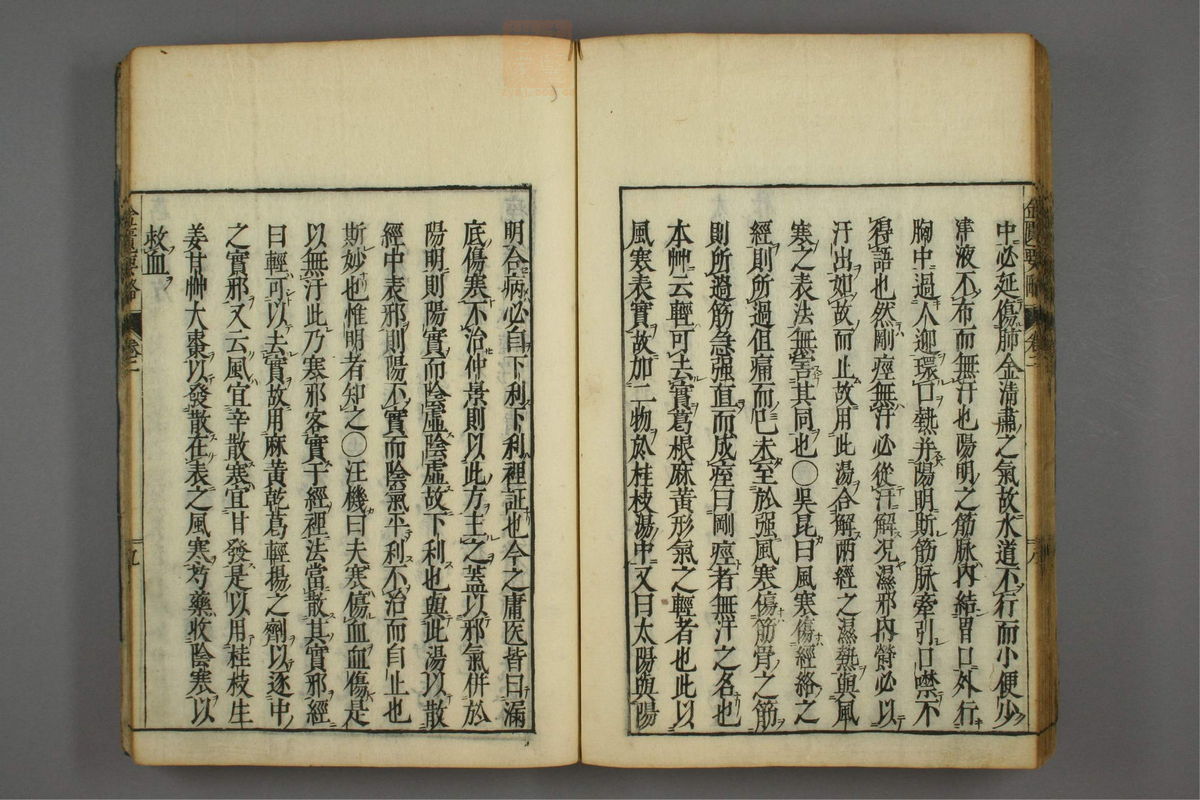 中必延傷肺金清肅之氣故水道不行而小便少
津液不布而無汗也陽明之筋脉內結胃口外行
胸中過人迎環口熱并陽明斯筋脉牽引口噤不
得語也然剛痙無汗必從汗解況濕邪內欝必以
汗出如故而止故用此湯合解兩經之濕熱與風
寒之表法無害其同也〇吳昆曰風寒傷經絡之
經則所過疽痛而已未至於强風寒傷筋骨之筋
則所過筋急强直而成痙曰剛痙者無汗之名也
本艸云輕可去實葛根麻黃形氣之輕者也此以
風寒表實故加二物於桂枝湯中又曰太陽與陽
金匱要略 卷二 八
明合病必自下利下利裡証也今之庸医皆曰漏
底傷寒不治仲景則以此方主之蓋以邪氣併於
陽明則陽實而陰虛陰虛故下利也與此湯以散
經中表邪則陽不實而陰氣平利不治而自止也
斯妙也惟明者知之〇汪機曰夫寒傷血血傷是
以無汗此乃寒邪客實于經裡法當散其實邪經
曰輕可以去實故用麻黃乾葛輕揚之劑以逐中
之實邪又云風宜辛散寒宜甘發是以用桂枝生
姜甘艸大棗以發散在表之風寒芍藥收陰寒以
救血
金匱要略 卷二 九